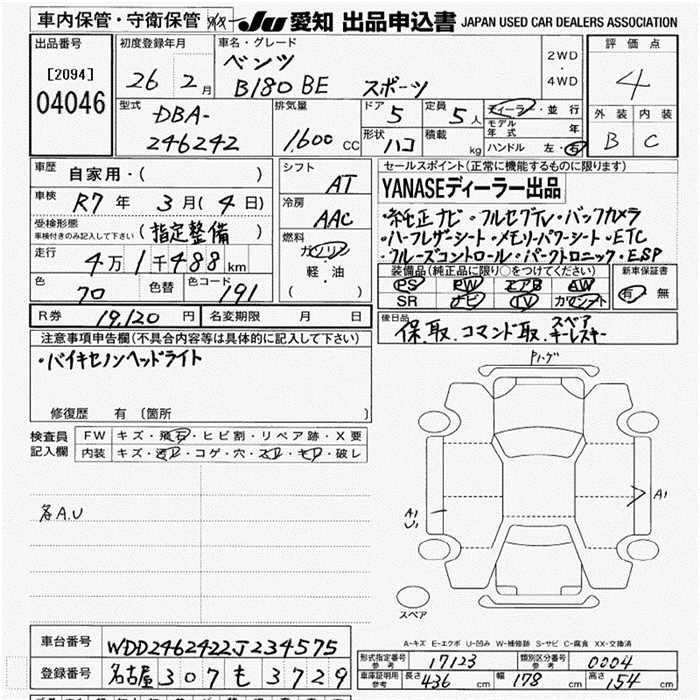 車内保管・守衛保管 JU 愛知 出品申込書 JAPAN USED CAR DEALERS ASSOCIATION
出品番号 初度登録年月 車名・グレード 評価点
[2094] 26年 2月 ベンツ 2WD・4WD 4
04046 B180 BE スポーツ
型式 排気量 ドア 5 定員 5人 ディーラー・並行 外装 内装
DBA- モデル年式 年 B C
246242 1,600 CC 形状 ハコ 積載 kg ハンドル 左・右
車歴 自家用・( ) シフト AT セールスポイント(正常に機能するものに限ります)
車検 R7年 3月(4日) 冷房 AAC YANASEディーラー出品
受検形態 車検付きのみ記入して下さい (指定整備) ・純正ナビ・フルセグTV・バックカメラ
走行 4万1千488km 燃料 ガソリン ・ハーフレザーシート・メモリーパワーシート・ETC
軽・油 ・クルーズコントロール・パークトロニック・ESP
色 70 色替 色コード 191 ( ) 装備品(純正品に限り○をつけてください) 新車保証書
PS PW エアB AW 有 無
SR ナビ TV ガワシート
R券 19,120円 名変期限 月 日 後日品 保.取.コマンド取.スペアキーレスキー
注意事項申告欄(不具合内容等は具体的に記入して下さい)
・バイキセノンヘッドライト
Pハーゲ
修復歴 有 〔箇所 〕
検査員記入欄 FW キズ・飛石・ヒビ割・リペア跡・X要
内装 キズ・汚れ・コゲ・穴・スレ・キレ・破レ
各A.U
A1
U1
A1
スペア
A-キズ E-エクボ U-凹み W-補修跡 S-サビ C-腐食 XX-交換済
車台番号 WDD2462422J234575
登録番号 名古屋 307 も 3729
形式指定番号参考 17123 類別区分番号参考 0004
車庫証明用参考 長さ 436cm 幅 178cm 高さ 154cm